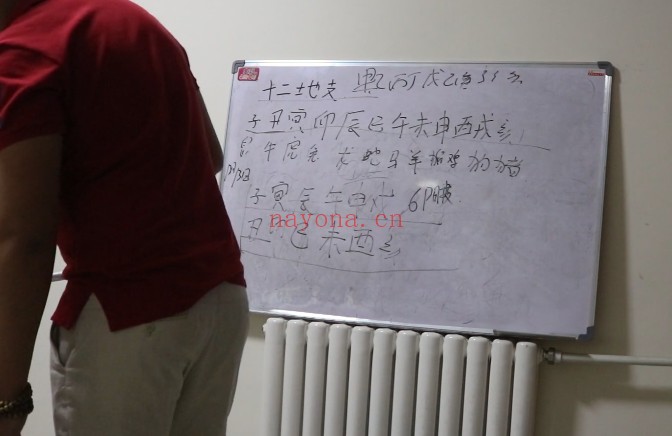 十二地支 丙丁戊己
子丑寅卯辰巳午未申酉戌亥
鼠牛虎兔龙蛇马羊猴鸡狗猪
子寅辰午申戌 6阳
nayona.cn
丑 巳未酉亥